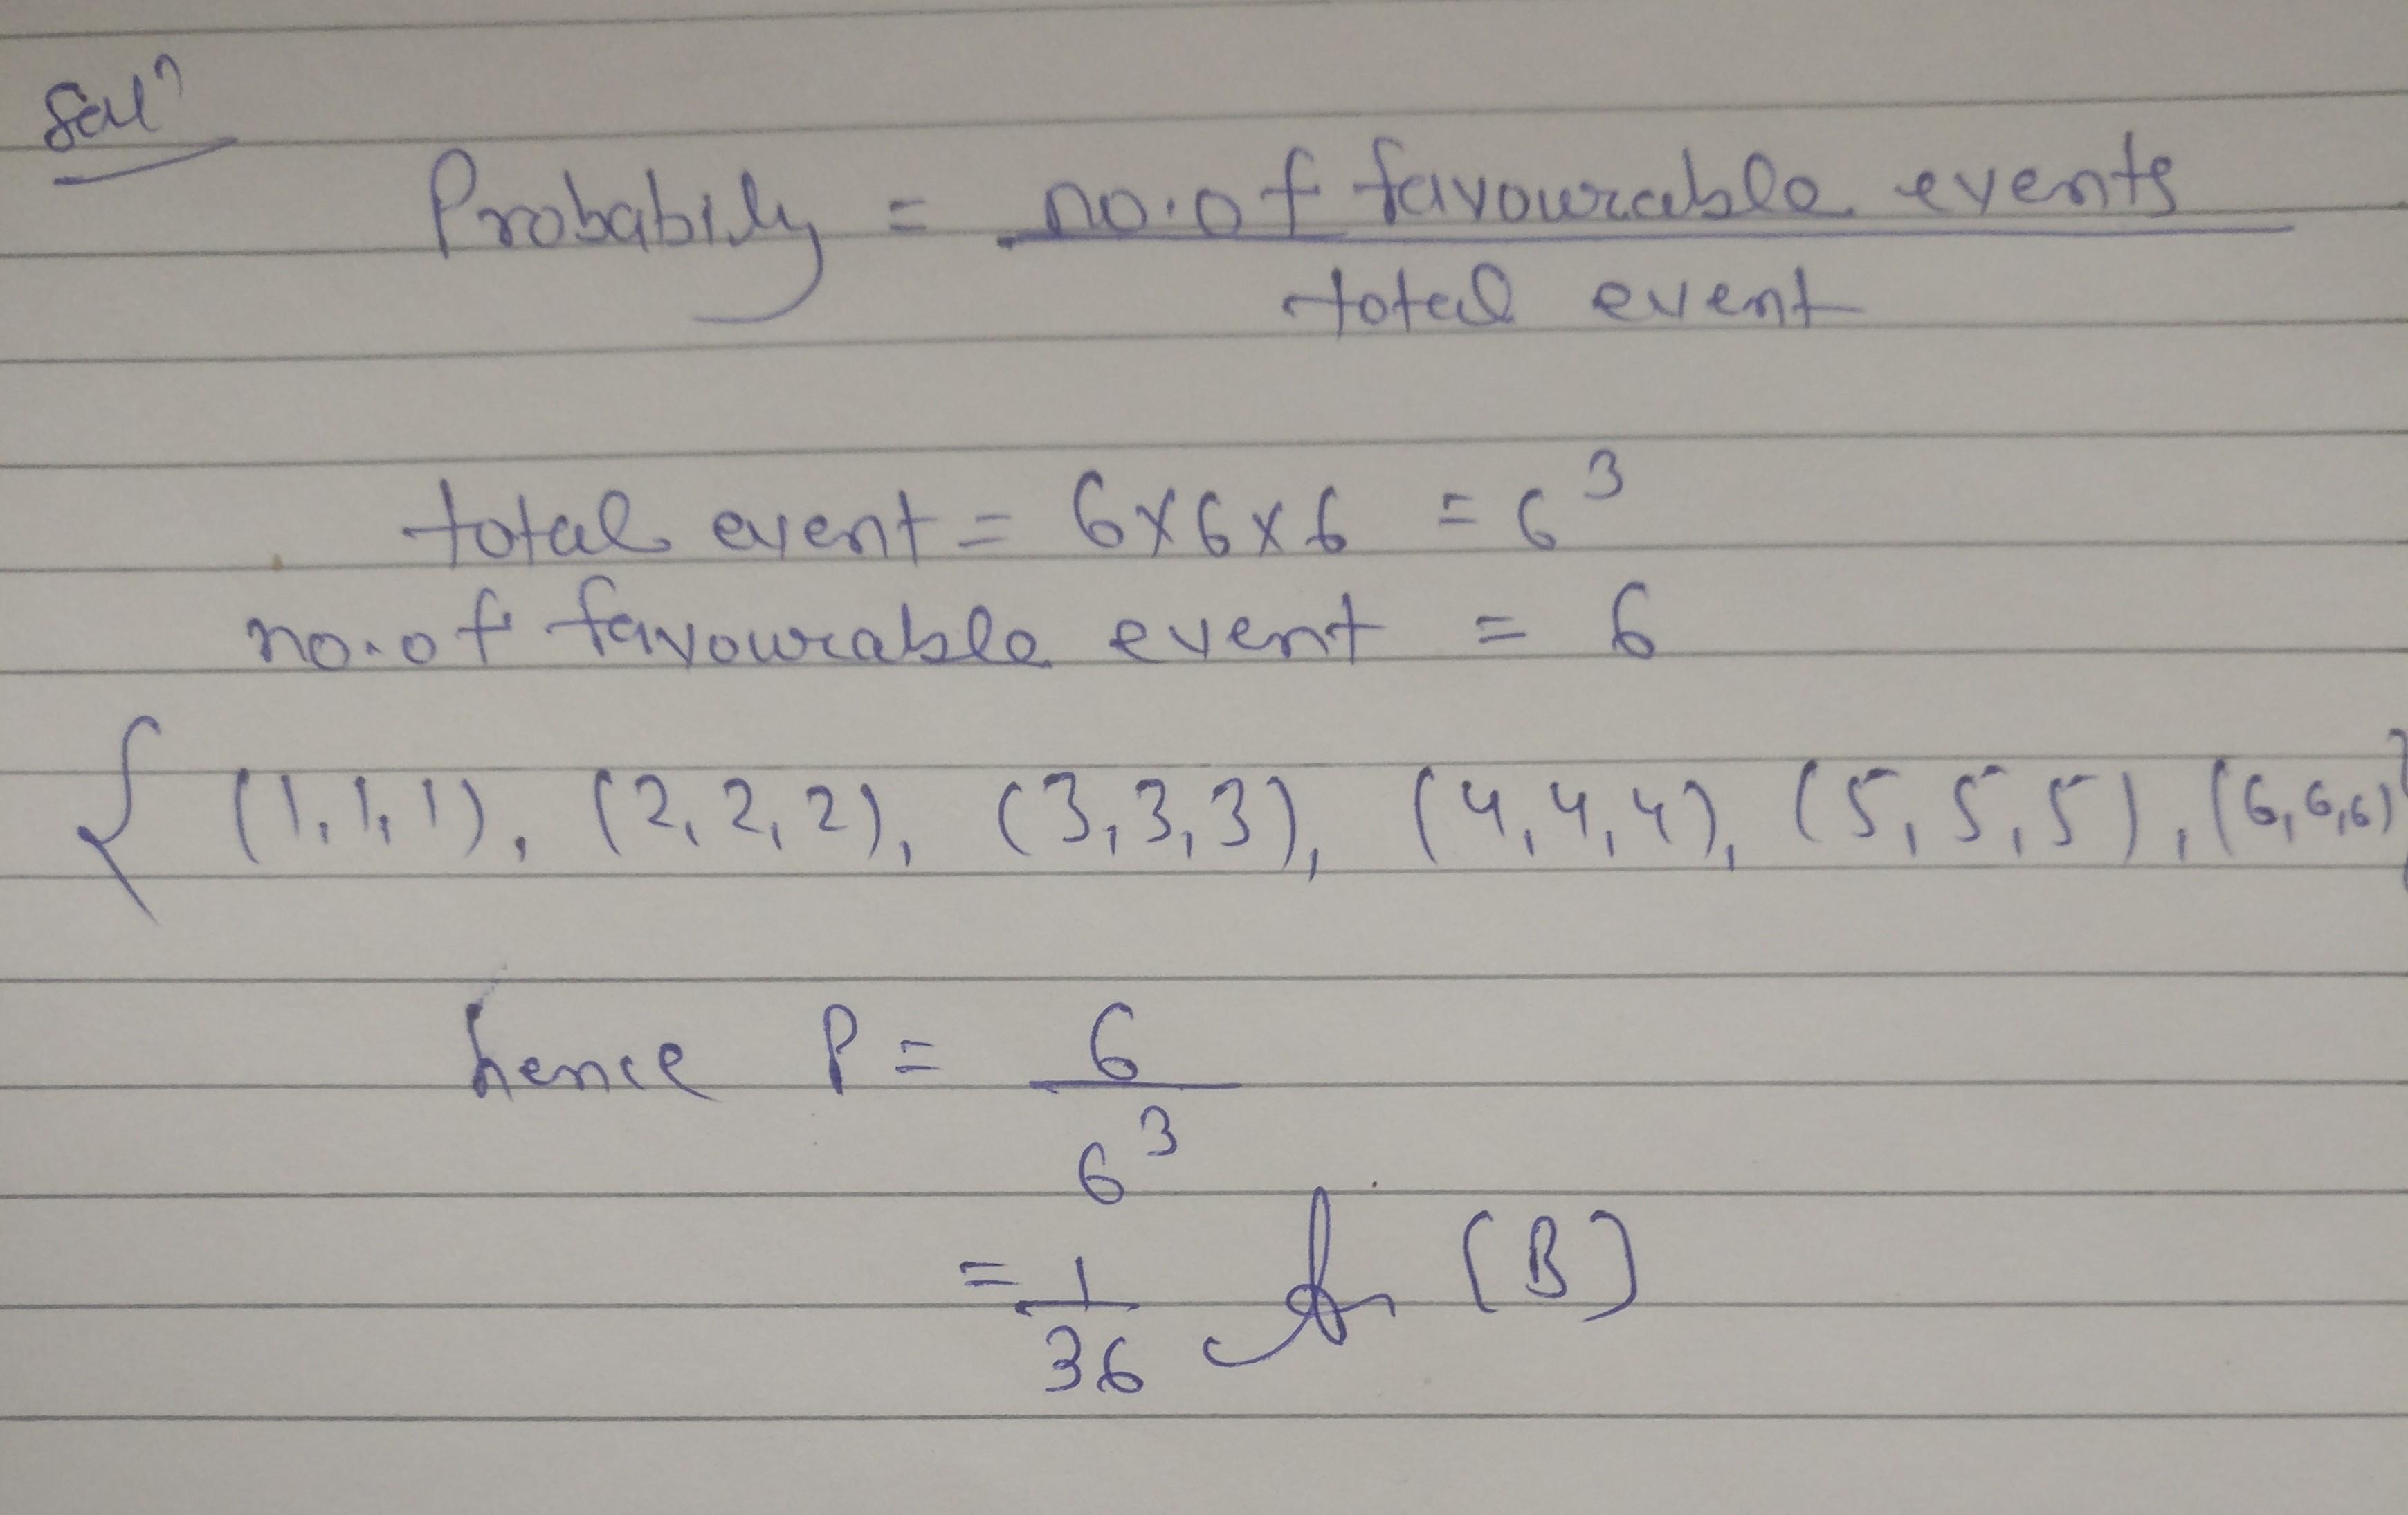 Solⁿ
Probabily = no. of favourable events
total event
total event = 6×6×6 = 6³
no. of favourable event = 6
{ (1,1,1), (2,2,2), (3,3,3), (4,4,4), (5,5,5), (6,6,6) }
hence P = 6
6³
= 1 (B)
36